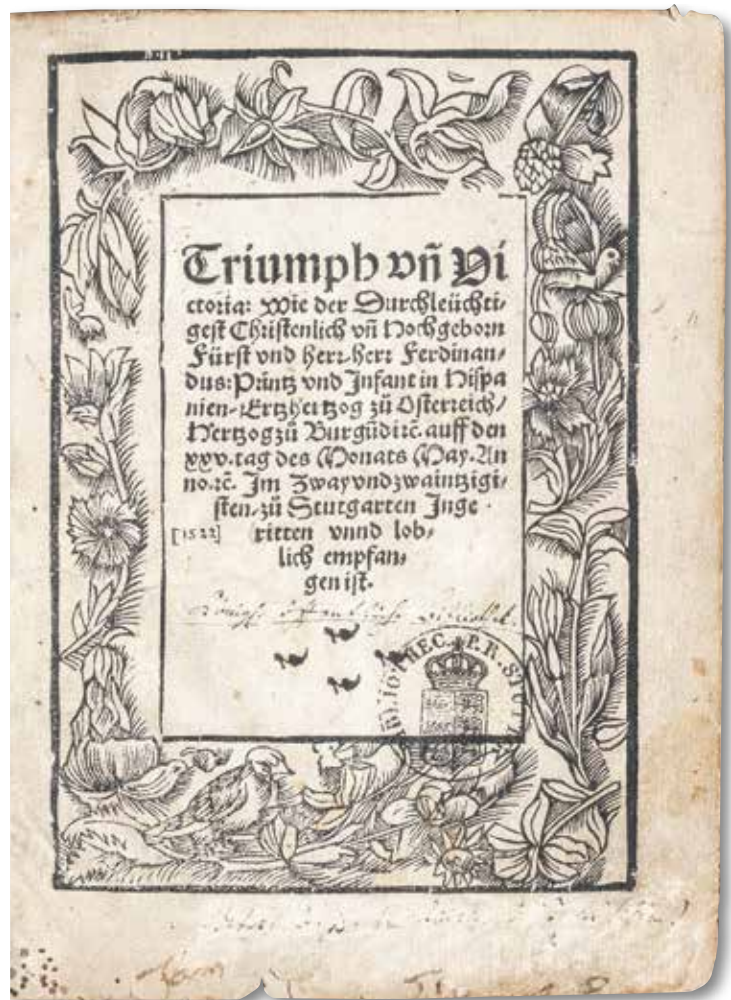 Triumph vñ Vi
ctoria: Wie der Durchleüchti⸗
gest Christenlich vñ Hochgeborn
Fürst vnd herr⸗herr Ferdinan⸗
dus: Printz vnd Infant in Hispa
nien⸗Ertzhertzog zů Osterreich/
Hertzog zů Burgūdi ꝛc̄. auff den
xxv. tag des Monats May. An
no.ꝛc̄. Im Zway vnd zwaintzigi⸗
sten⸗zů Stutgarten Inge
[1522] ritten vnnd lob⸗
lich empfan⸗
gen ist.
BIBLIOTHEC. P. R. STUTT